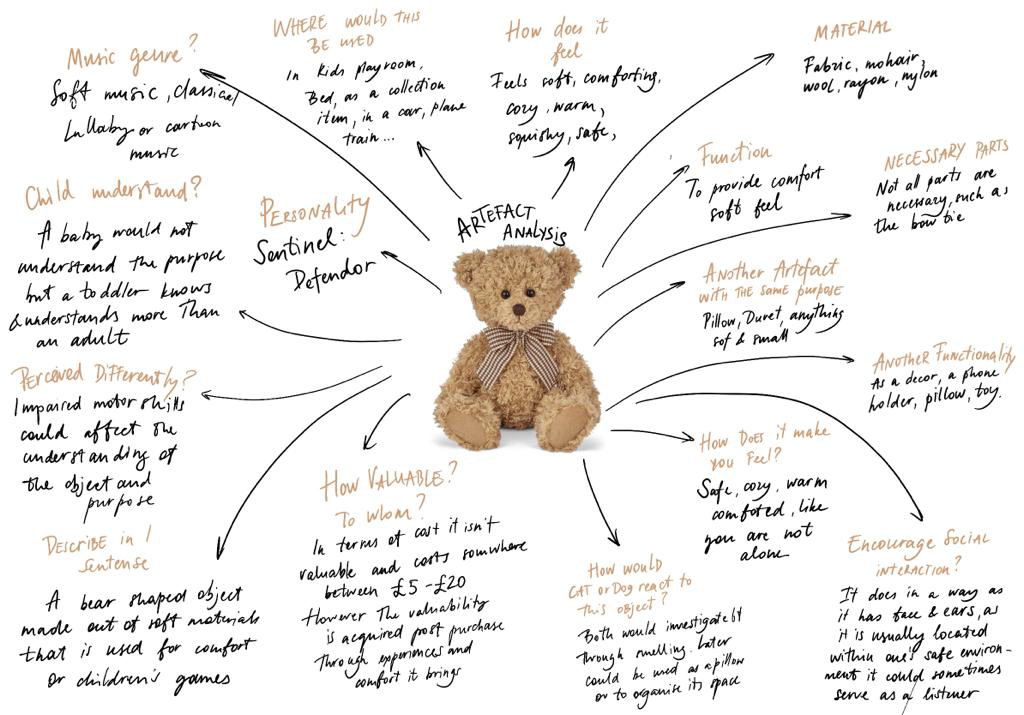 ARTEFACT
ANALYSIS
Music genre?
Soft music, classical
Lullaby or cartoon
music
WHERE WOULD THIS
BE USED
In kids playroom,
Bed, as a collection
item, in a car, plane
train...
How does it
feel
Feels soft, comforting,
cozy, warm,
squishy, safe,
MATERIAL
Fabric, mohair,
wool, rayon, nylon
Function
To provide comfort
soft feel
NECESSARY PARTS
Not all parts are
necessary, such as
the bow tie
Child understand?
A baby would not
understand the purpose
but a toddler knows
& understands more than
an adult
PERSONALITY
Sentinel:
Defendor
Another Artefact
WITH THE SAME PURPOSE
Pillow, Duvet, anything
sof & small
ANOTHER Functionality
As a decor, a phone
holder, pillow, toy.
Perceived Differently?
Impaired motor skills
could affect the
understanding of
the object and
purpose
How VALUABLE?
To whom?
In terms of cost it isn't
valuable and costs somwhere
between £5 - £20
However The valuability
is acquired post purchase
Through experiences and
comfort it brings
How Does it make
you Feel?
Safe, cozy, warm
comfoted, like
you are not
alone
DESCRIBE in 1
sentense
A bear shaped object
made out of soft materials
that is used for comfort
or children's games
How would
CAT or Dog react to
this object?
Both would investigate it
Through smelling. Later
could be used as a pillow
or to organise its space
Encourage Social
interaction?
It does in a way as
it has face & ears, as
it is usually located
within one's safe environ-
ment it could sometimes
serve as a listener